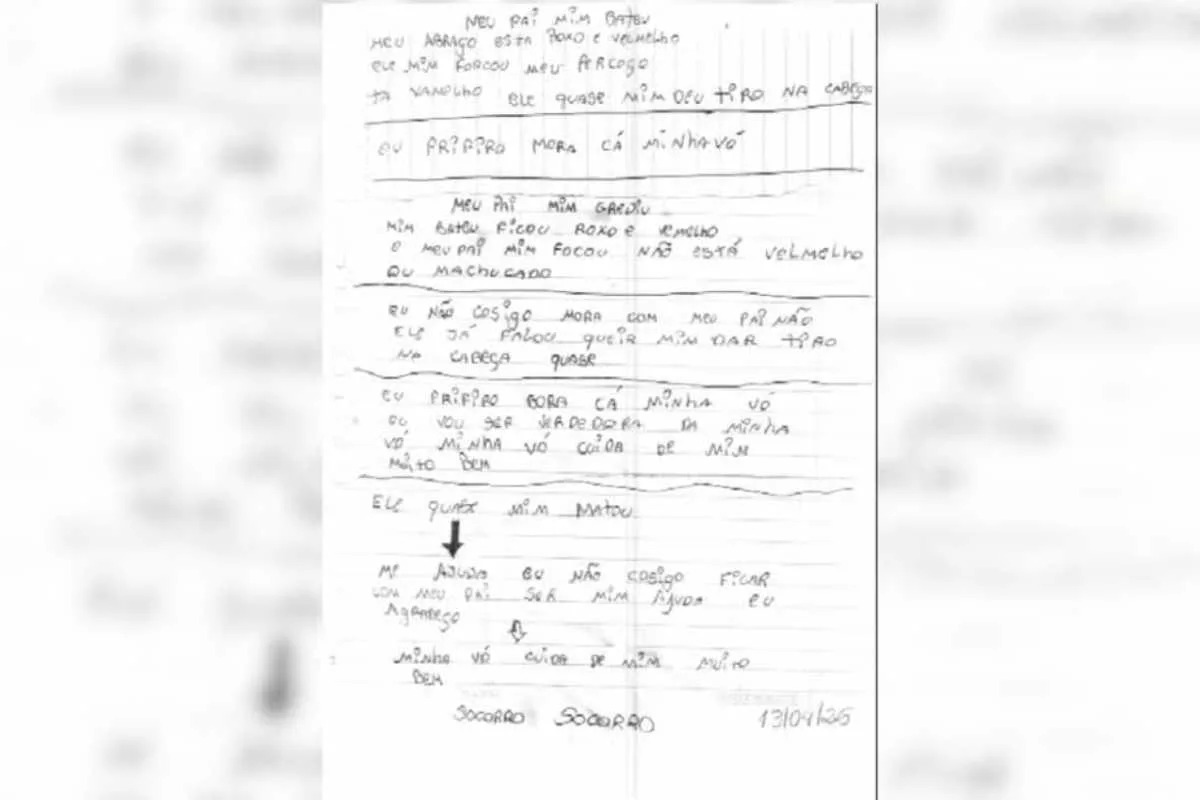 MEU PAI MIM BATEU
MEU ABRAÇO ESTA ROXO E VELMELHO
ELE MIM FORCOU MEU PERCOGO
TA VAMELHO ELE QUASE MIM DEU TIRO NA CABEÇA
EU PRIFIRO MORA CÁ MINHA VÓ
MEU PAI MIM GREDIU
MIM BATEU FICOU ROXO E VEMELHO
E MEU PAI MIM FOCOU NÃO ESTÁ VELMELHO
OU MACHUCADO
EU NÃO COSIGO MORA COM MEU PAI NÃO
ELE JÁ FALOU QUEIR MIM DAR TIRO
NA CABEÇA QUASE
EU PRIFIRO BORA CÁ MINHA VÓ
EU VOU SER VERDEDEIRA DA MINHA
VÓ MINHA VÓ CUIDA DE MIM
MUITO BEM
ELE QUASE MIM MATOU
ME AJUDA EU NÃO COSIGO FICAR
COM MEU PAI SER MIM AJUDA EU
AGRADEÇO
MINHA VÓ CUIDA DE MIM MUITO
BEM
SOCORRO SOCORRO 13/04/25